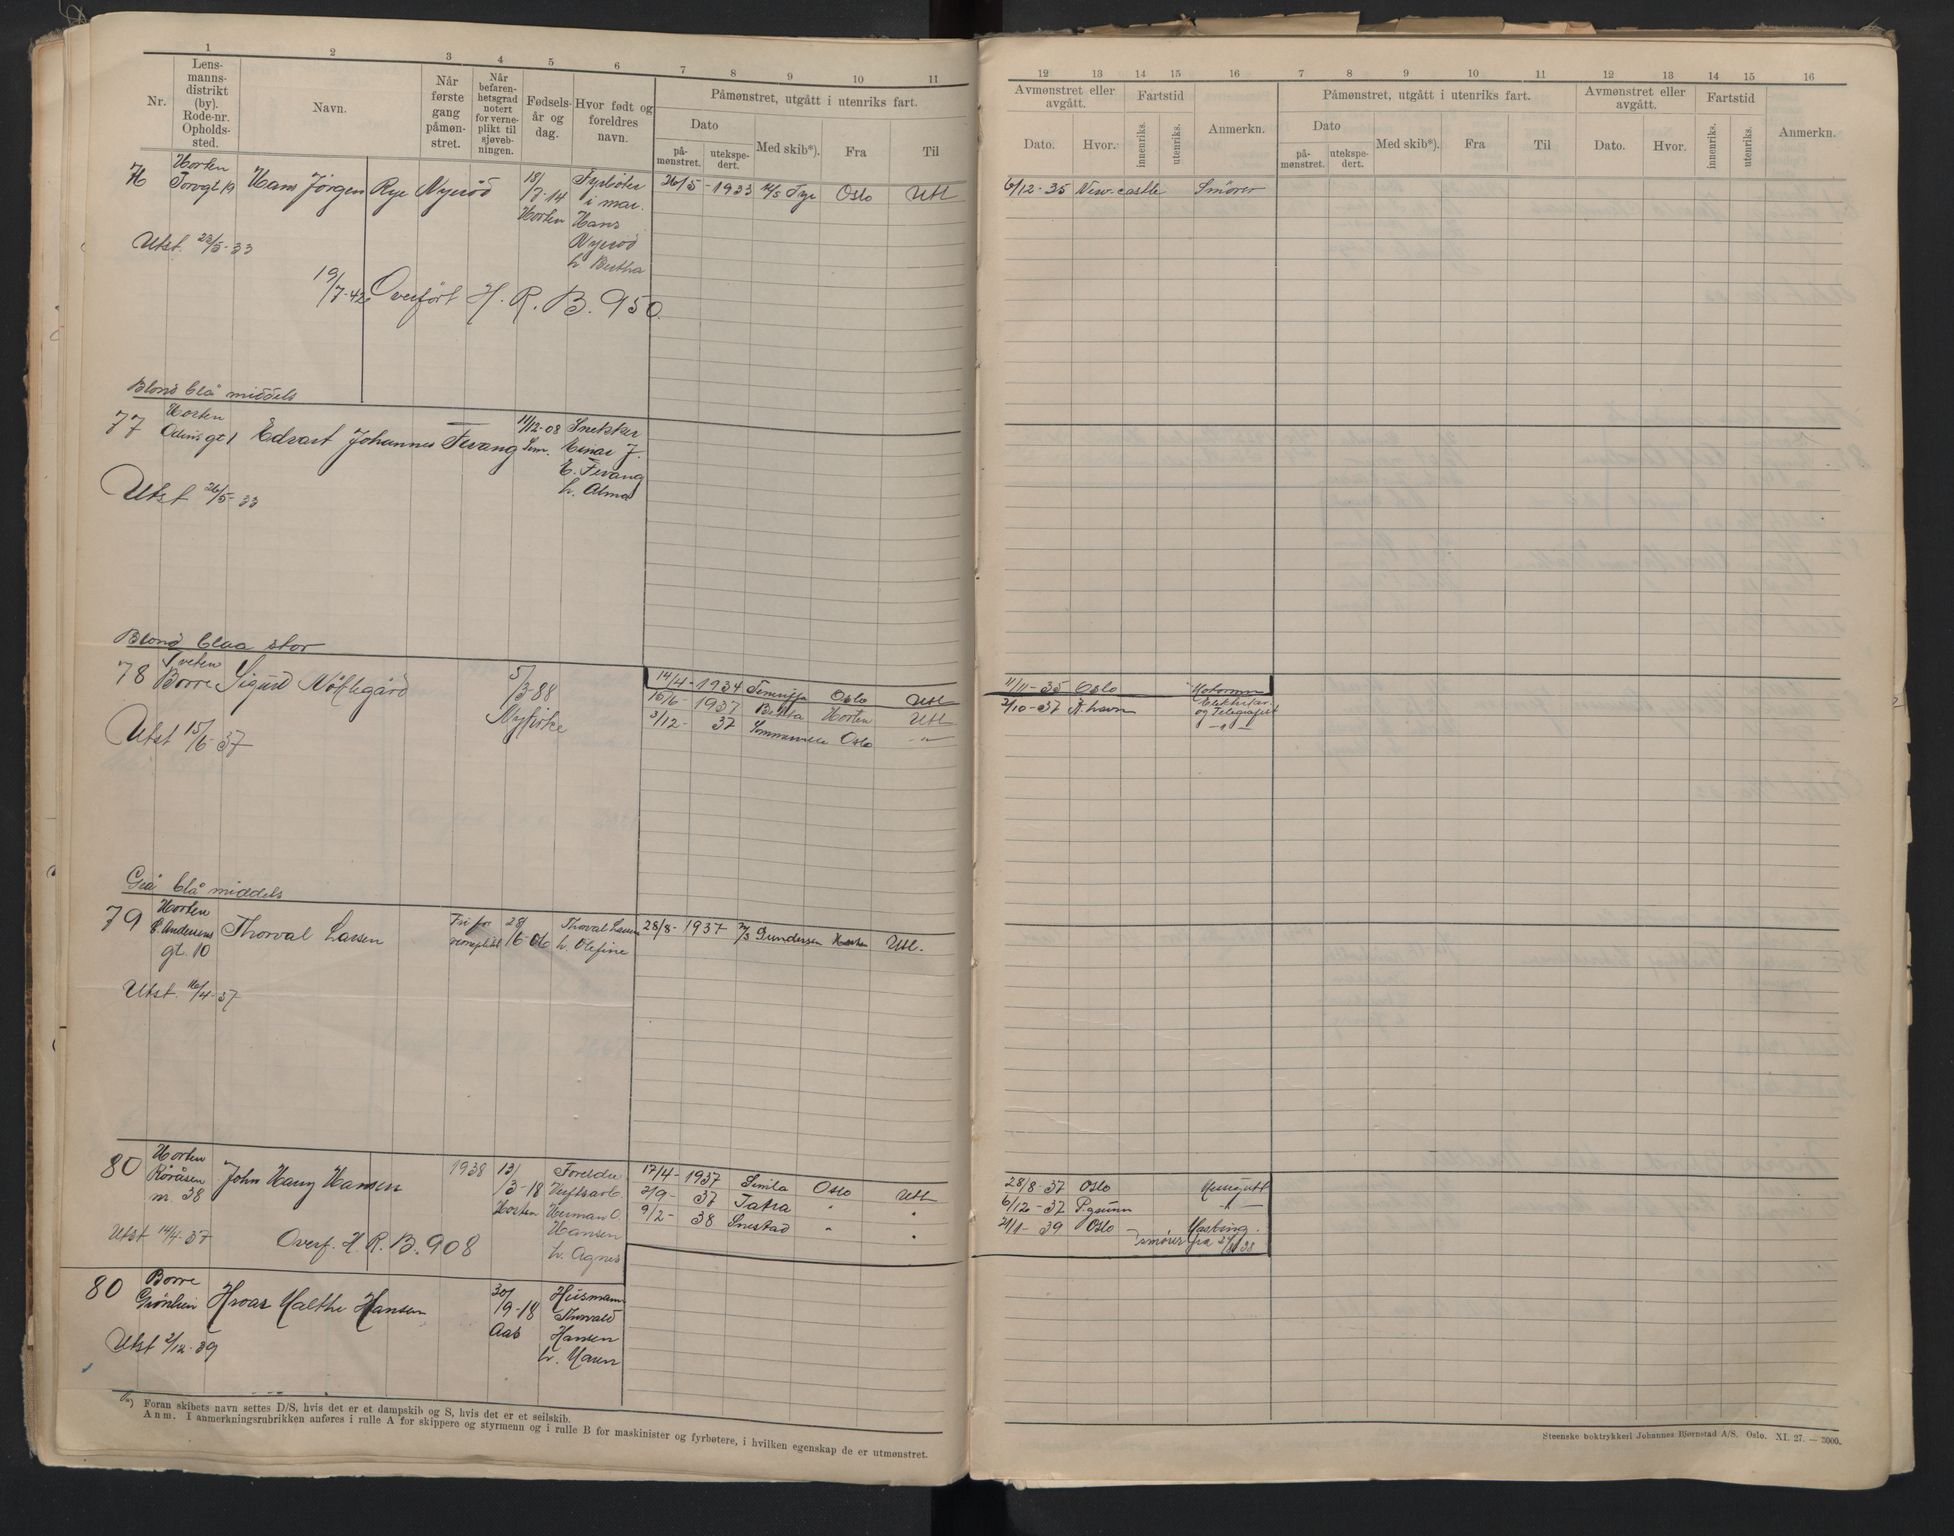 1 2 3 4 5 6 7 8 9 10 11
Nr.
Lensmanns-
distrikt
(by).
Rode-nr.
Opholds-
sted.
Navn.
Når
første
gang
påmøn-
stret.
Når
befaren-
hetsgrad
notert
for verne-
plikt til
sjøveb-
ningen.
Fødsels-
år og
dag.
Hvor født og
foreldres
navn.
Påmønstret, utgått i utenriks fart.
Dato
på-
mønstret.
utekspe-
dert.
Med skib*).
Fra
Til
Horten
Torvgt 19 Hans Jörgen Rye Nyeröd 18/7-14 Horten
Fyrböter
i mar.
Hans
Nyeröd
h. Bertha
26/5-1933 Oslo Utl
Utst. 23/5-33
19/7-42 Overfört H. R. B. 950.
Blond blå middels
77 Horten
Odinsgt 1 Edvart Johannes Fevang 11/12-08 Sem.
Snekker
Einar J.
E. Fevang
h. Alma
Utst 26/5-33
Blond blaa stor
78 Borre Sigurd Nöklegård 5/3-88 Nykirke
14/4-1934 Oslo Utl
15/6-1937 Horten Utl
3/12-37 Oslo -"-
Utst 15/6-37
Grå blå middels
79 Horten
C. Andersens
gt. 10 Thorval Larsen
Fri for
verneplikt
28/6-06
Thorval Larsen
h. Olefine
28/8-1937 M/S Gundersen Horten Utl.
Utst. 16/4-37
80 Horten
Röråsen
nr. 38 John Harry Hansen 1938 13/3-18 Horten
Foreldre
Verftsarb.
Herman O.
Hansen
h. Agnes
17/4-1937 Simla Oslo Utl
2/9-37 Tatra "
9/2-38 Snestad "
Utst 14/4-37 Overf. H. R. B. 908
80 Borre
Grönlien Hroar Malthe Hansen 30/9-18 Aas
Husmann
Thorvald
Hansen
h. Maren
Utst 2/12-39
*) Foran skibets navn settes D/S, hvis det er et dampskib og S, hvis det er et seilskib.
Anm. I anmerkningsrubrikken anføres i rulle A for skippere og styrmenn og i rulle B for maskinister og fyrbøtere, i hvilken egenskap de er utmønstret.
12 13 14 15 16 7 8 9 10 11 12 13 14 15 16
Avmønstret eller
avgått.
Dato.
Hvor.
Fartstid
innenriks.
utenriks.
Anmerkn.
Påmønstret, utgått i utenriks fart.
Dato
på-
mønstret.
utekspe-
dert.
Med skib*).
Fra
Til
Avmønstret eller
avgått.
Dato.
Hvor.
Fartstid
innenriks.
utenriks.
Anmerkn.
6/12-35 New-castle Smörer
11/11-35 Oslo Motormn
2/10-37 K.havn Elektriker
og Telegrafist
-"-
28/8-37 Oslo Messegutt
6/12-37 P.grunn -"-
21/1-39 Oslo
smörer fra
Steenske boktrykkeri Johannes Bjørnstad A/S. Oslo. XI. 27. — 3000.